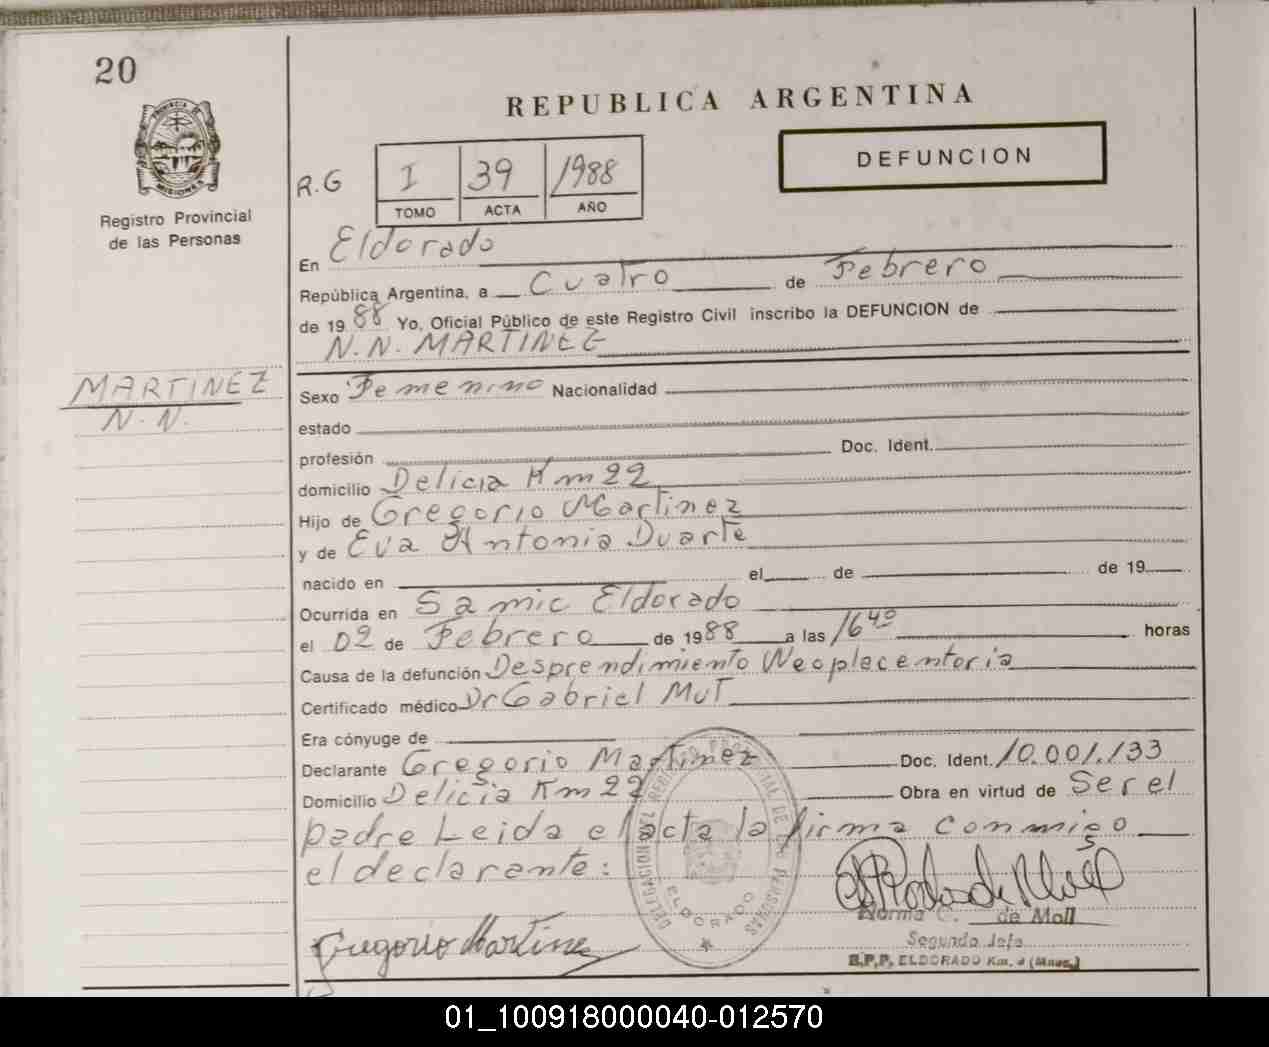 20
REPUBLICA ARGENTINA
DEFUNCION
PROVINCIA DE MISIONES
Registro Provincial
de las Personas
R.G I 39 1988
TOMO ACTA AÑO
En Eldorado
República Argentina, a Cuatro de Febrero
de 1988 Yo, Oficial Público de este Registro Civil inscribo la DEFUNCION de
N.N. MARTINEZ
MARTINEZ
N.N.
Sexo Femenino Nacionalidad
estado
profesión Doc. Ident.
domicilio Delicia Km 22
Hijo de Gregorio Martinez
y de Eva Antonia Duarte
nacido en el de de 19
Ocurrida en Samic Eldorado
el 02 de Febrero de 1988 a las 16 40 horas
Causa de la defunción Desprendimiento Neoplacentoria
Certificado médico Dr Gabriel Mut
Era cónyuge de
Declarante Gregorio Martinez Doc. Ident. 10.001.133
Domicilio Delicia Km 22 Obra en virtud de Ser el
padre Leida el acta la firma conmigo
el declarante:
DELEGACION DEL REGISTRO PROVINCIAL DE LAS PERSONAS
ELDORADO
Gregorio Martinez
Norma C. de Moll
Segundo Jefe
R.P.P. ELDORADO Km.
01_100918000040-012570